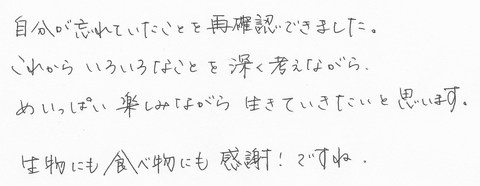 自分が忘れていたことを再確認できました。
これから いろいろなことを 深く考えながら.
めいっぱい 楽しみながら 生きていきたいと思います。
生物にも 食べ物にも 感謝! ですね.